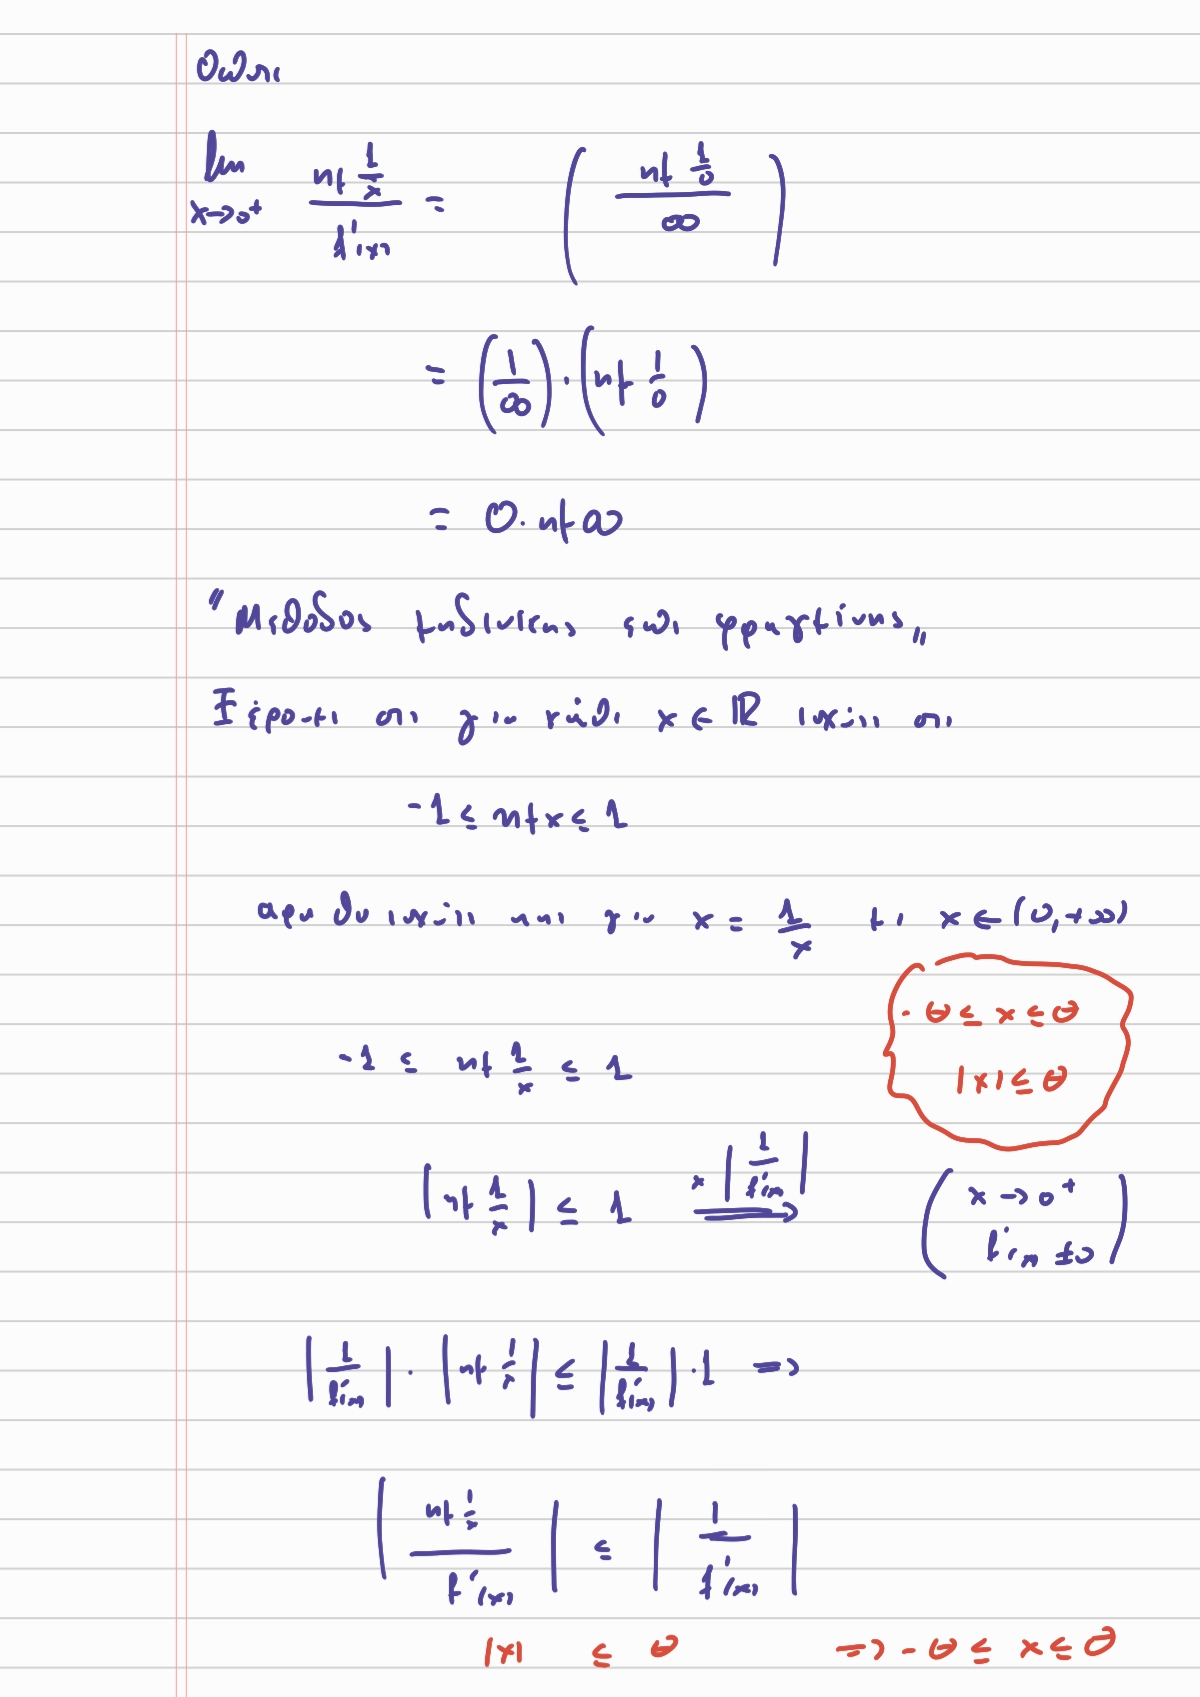 Οπότε
lim x→0⁺ ημ 1/x / f'(x) = ( ημ 1/0 / ∞ )
= (1/∞) · (ημ 1/0)
= 0 · ημ∞
"Μέθοδος μηδενικής επί φραγμένης"
Ξέρουμε ότι για κάθε x ∈ ℝ ισχύει ότι
-1 ≤ ημx ≤ 1
άρα θα ισχύει και για x = 1/x με x ∈ (0, +∞)
- θ ≤ x ≤ θ
-1 ≤ ημ 1/x ≤ 1
|x| ≤ θ
|ημ 1/x| ≤ 1 ⟹ x |1/f'(x)| ( x → 0⁺ f'(x) ≠ 0 )
|1/f'(x)| · |ημ 1/x| ≤ |1/f'(x)| · 1 ⇒
| ημ 1/x / f'(x) | ≤ | 1 / f'(x) |
|x| ≤ θ ⇒ - θ ≤ x ≤ θ